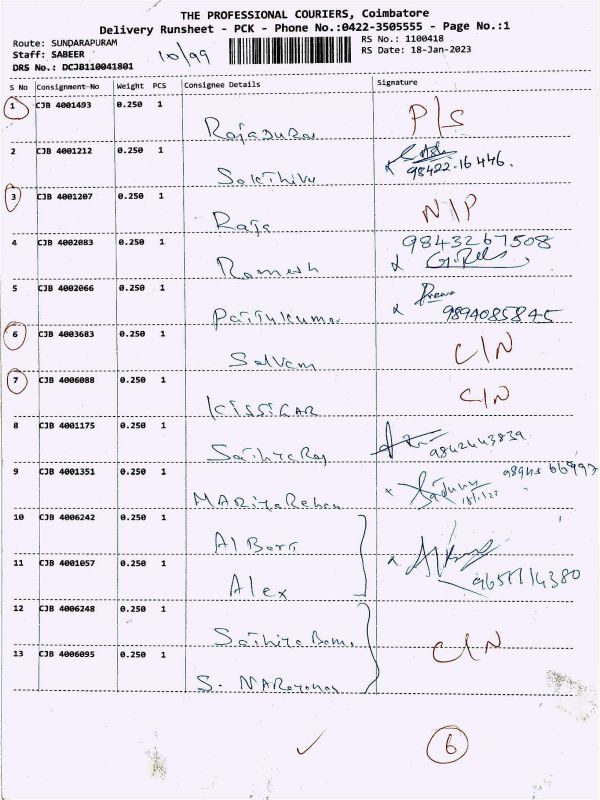 THE PROFESSIONAL COURIERS, Coimbatore
Delivery Runsheet - PCK - Phone No.:0422-3505555 - Page No.:1
Route: SUNDARAPURAM
RS No.: 1100418
Staff: SABEER
10/99
RS Date: 18-Jan-2023
DRS No.: DCJB110041801
S No Consignment-No Weight PCS Consignee Details Signature
1 CJB 4001493 0.250 1
P/S
2 CJB 4001212 0.250 1
Sakthivel
98422-16446.
3 CJB 4001207 0.250 1
Raja N/P
4 CJB 4002083 0.250 1
9843267508
Ramesh
5 CJB 4002066 0.250 1
9894085845
6 CJB 4003683 0.250 1
Selvam C/N
7 CJB 4006088 0.250 1
C/N
8 CJB 4001175 0.250 1
9842443839
9 CJB 4001351 0.250 1
10 CJB 4006242 0.250 1
Albert
11 CJB 4001057 0.250 1
Alex
12 CJB 4006248 0.250 1
C/N
13 CJB 4006095 0.250 1
S. NARayanan
6